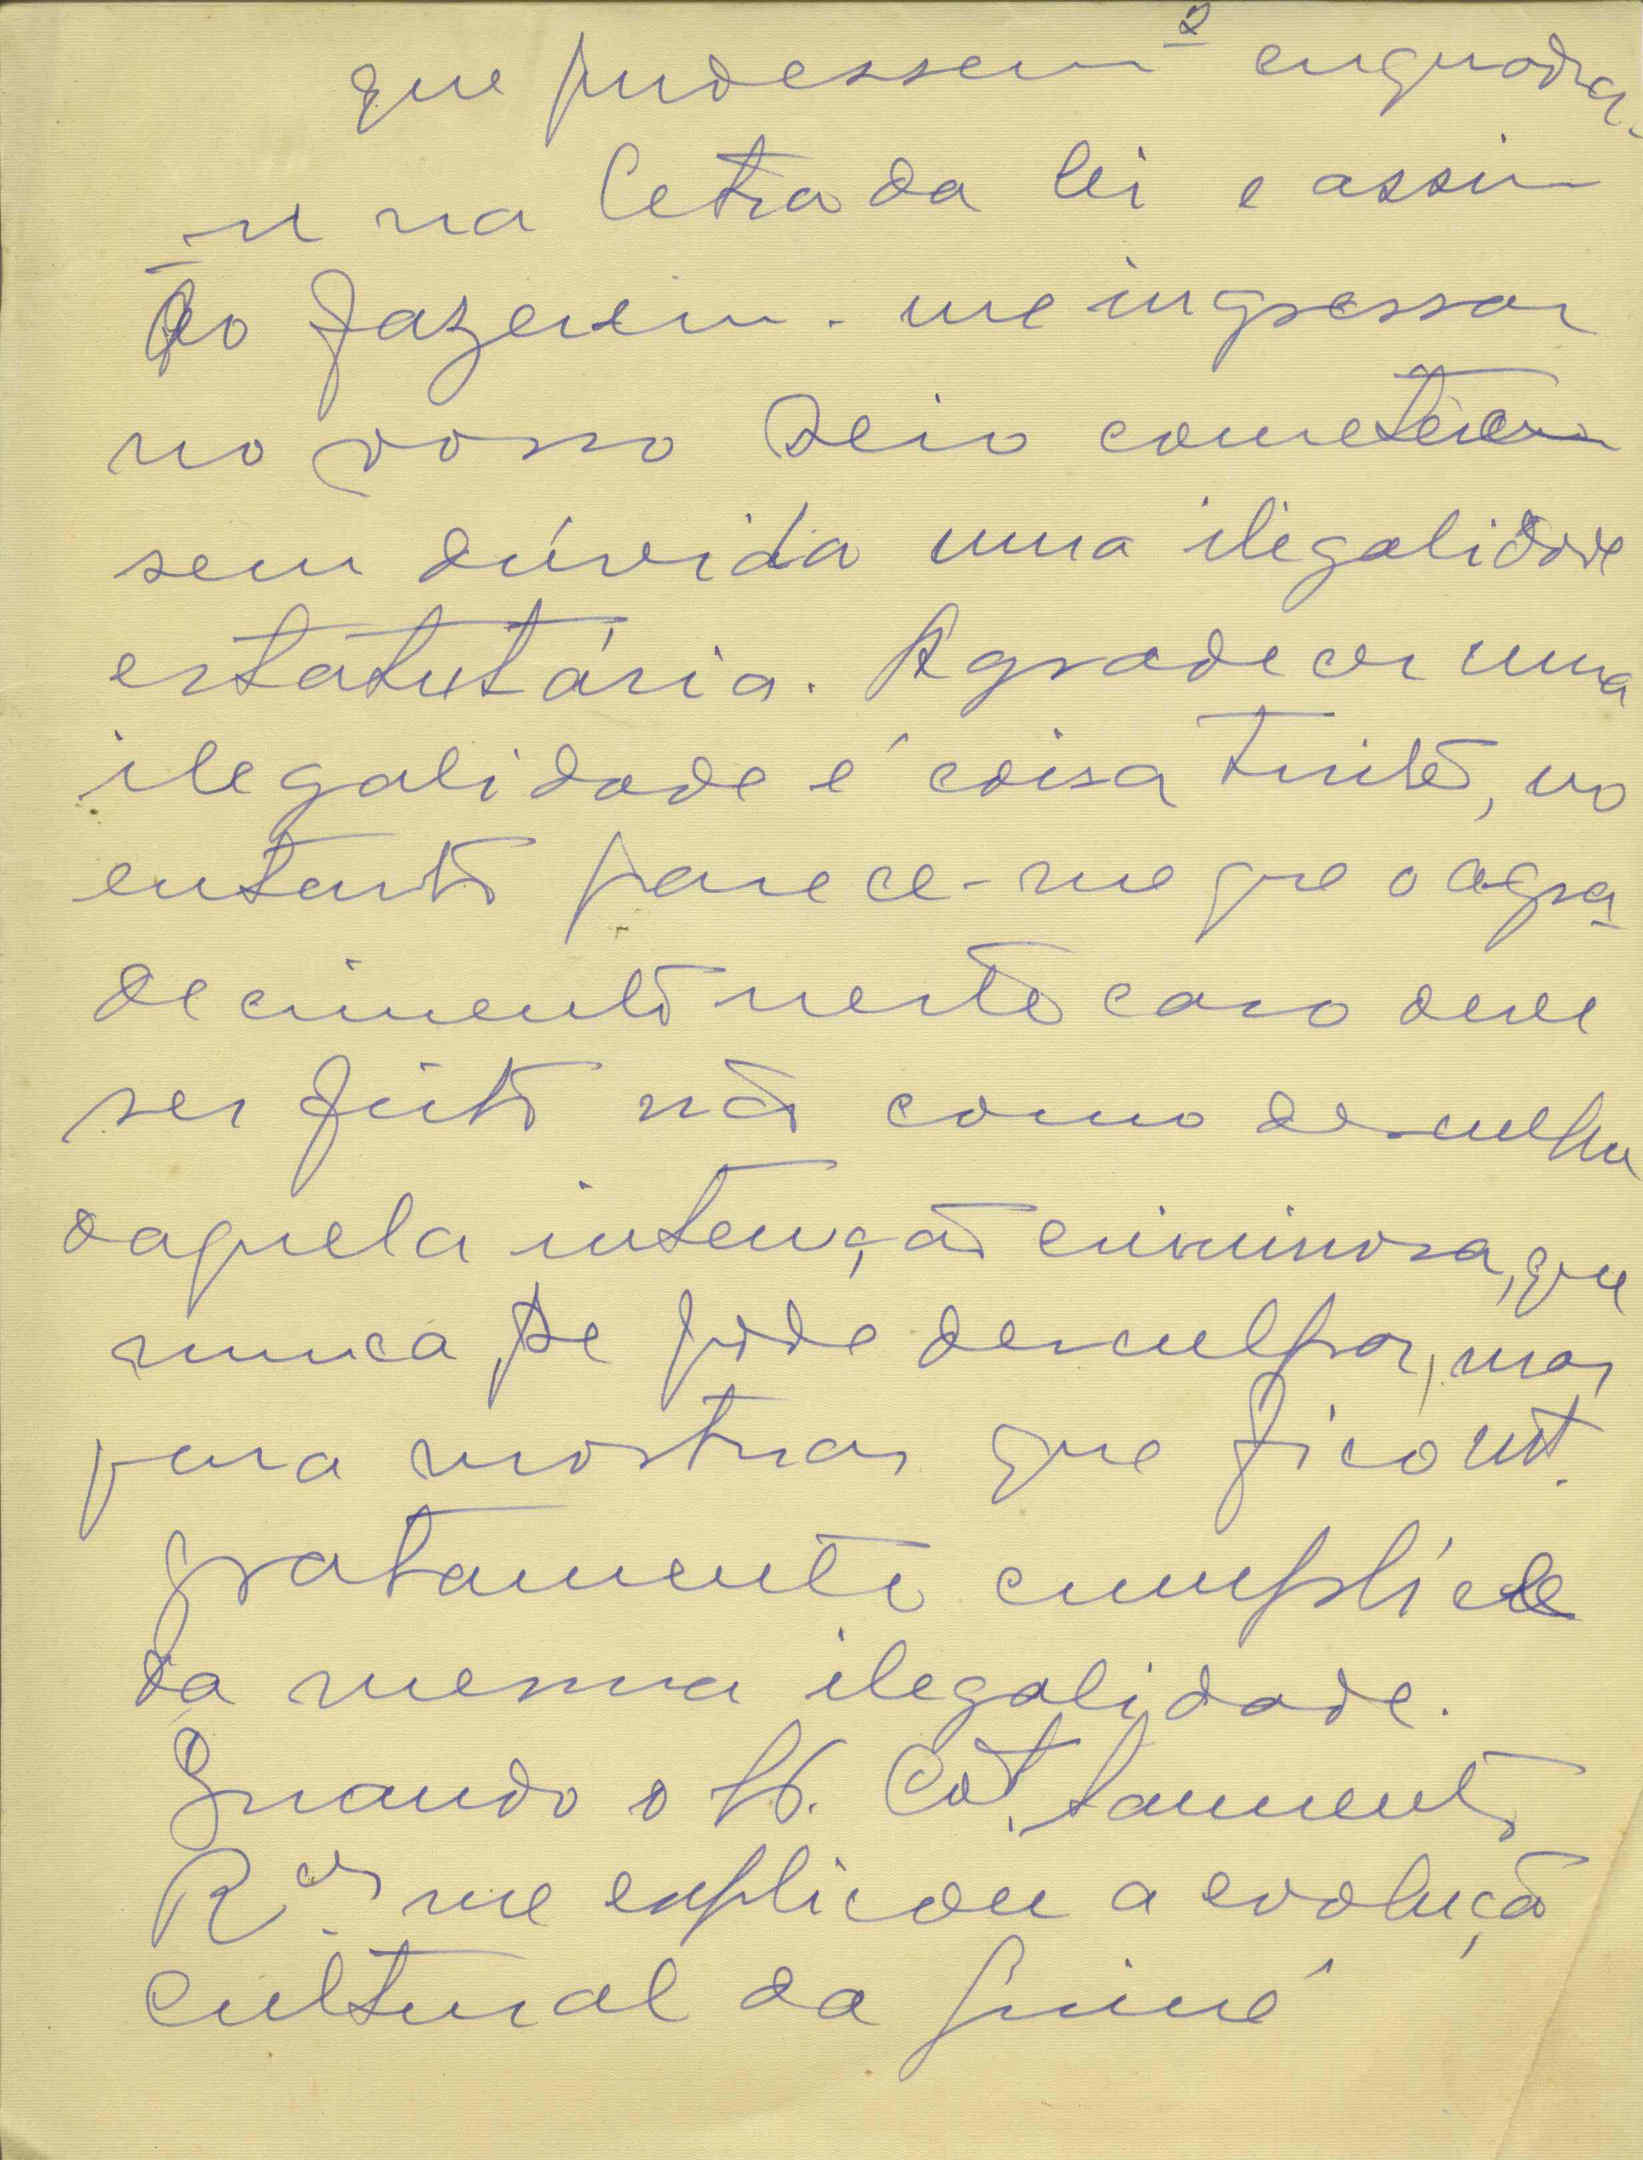 2
que pudessem enquadra-
r na letra da lei e assim
Ao fazerem-me ingressar
no vosso seio cometeram
sem dúvida uma ilegalidade
estatutária. Agradecer uma
ilegalidade é coisa triste, no
entanto parece-me que o agra
decimento neste caso deve
ser feito não como desculpa
daquela intenção criminosa, que
nunca se pode desculpar, mas
para mostrar que fico
gratamente cumplíce
da mesma ilegalidade.
Quando o Cat. Sarmento
R.es me explicou a evolução
cultural da Guiné